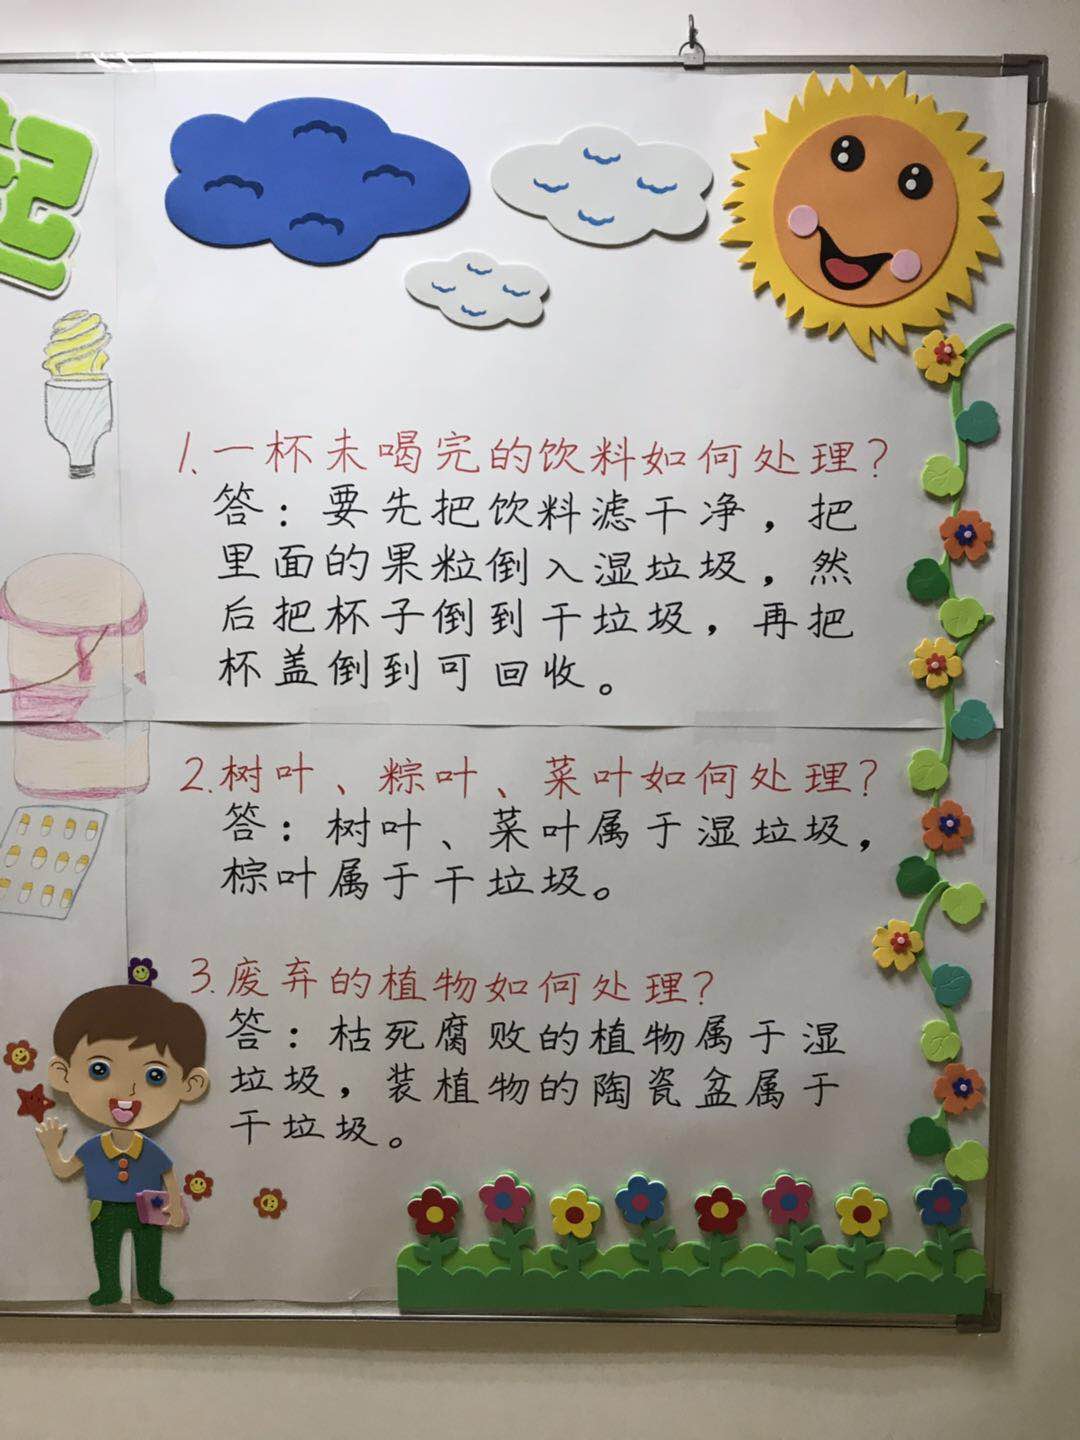 起
1.一杯未喝完的饮料如何处理?
答:要先把饮料滤干净,把
里面的果粒倒入湿垃圾,然
后把杯子倒到干垃圾,再把
杯盖倒到可回收。
2.树叶、粽叶、菜叶如何处理?
答:树叶、菜叶属于湿垃圾,
棕叶属于干垃圾。
3.废弃的植物如何处理?
答:枯死腐败的植物属于湿
垃圾,装植物的陶瓷盆属于
干垃圾。